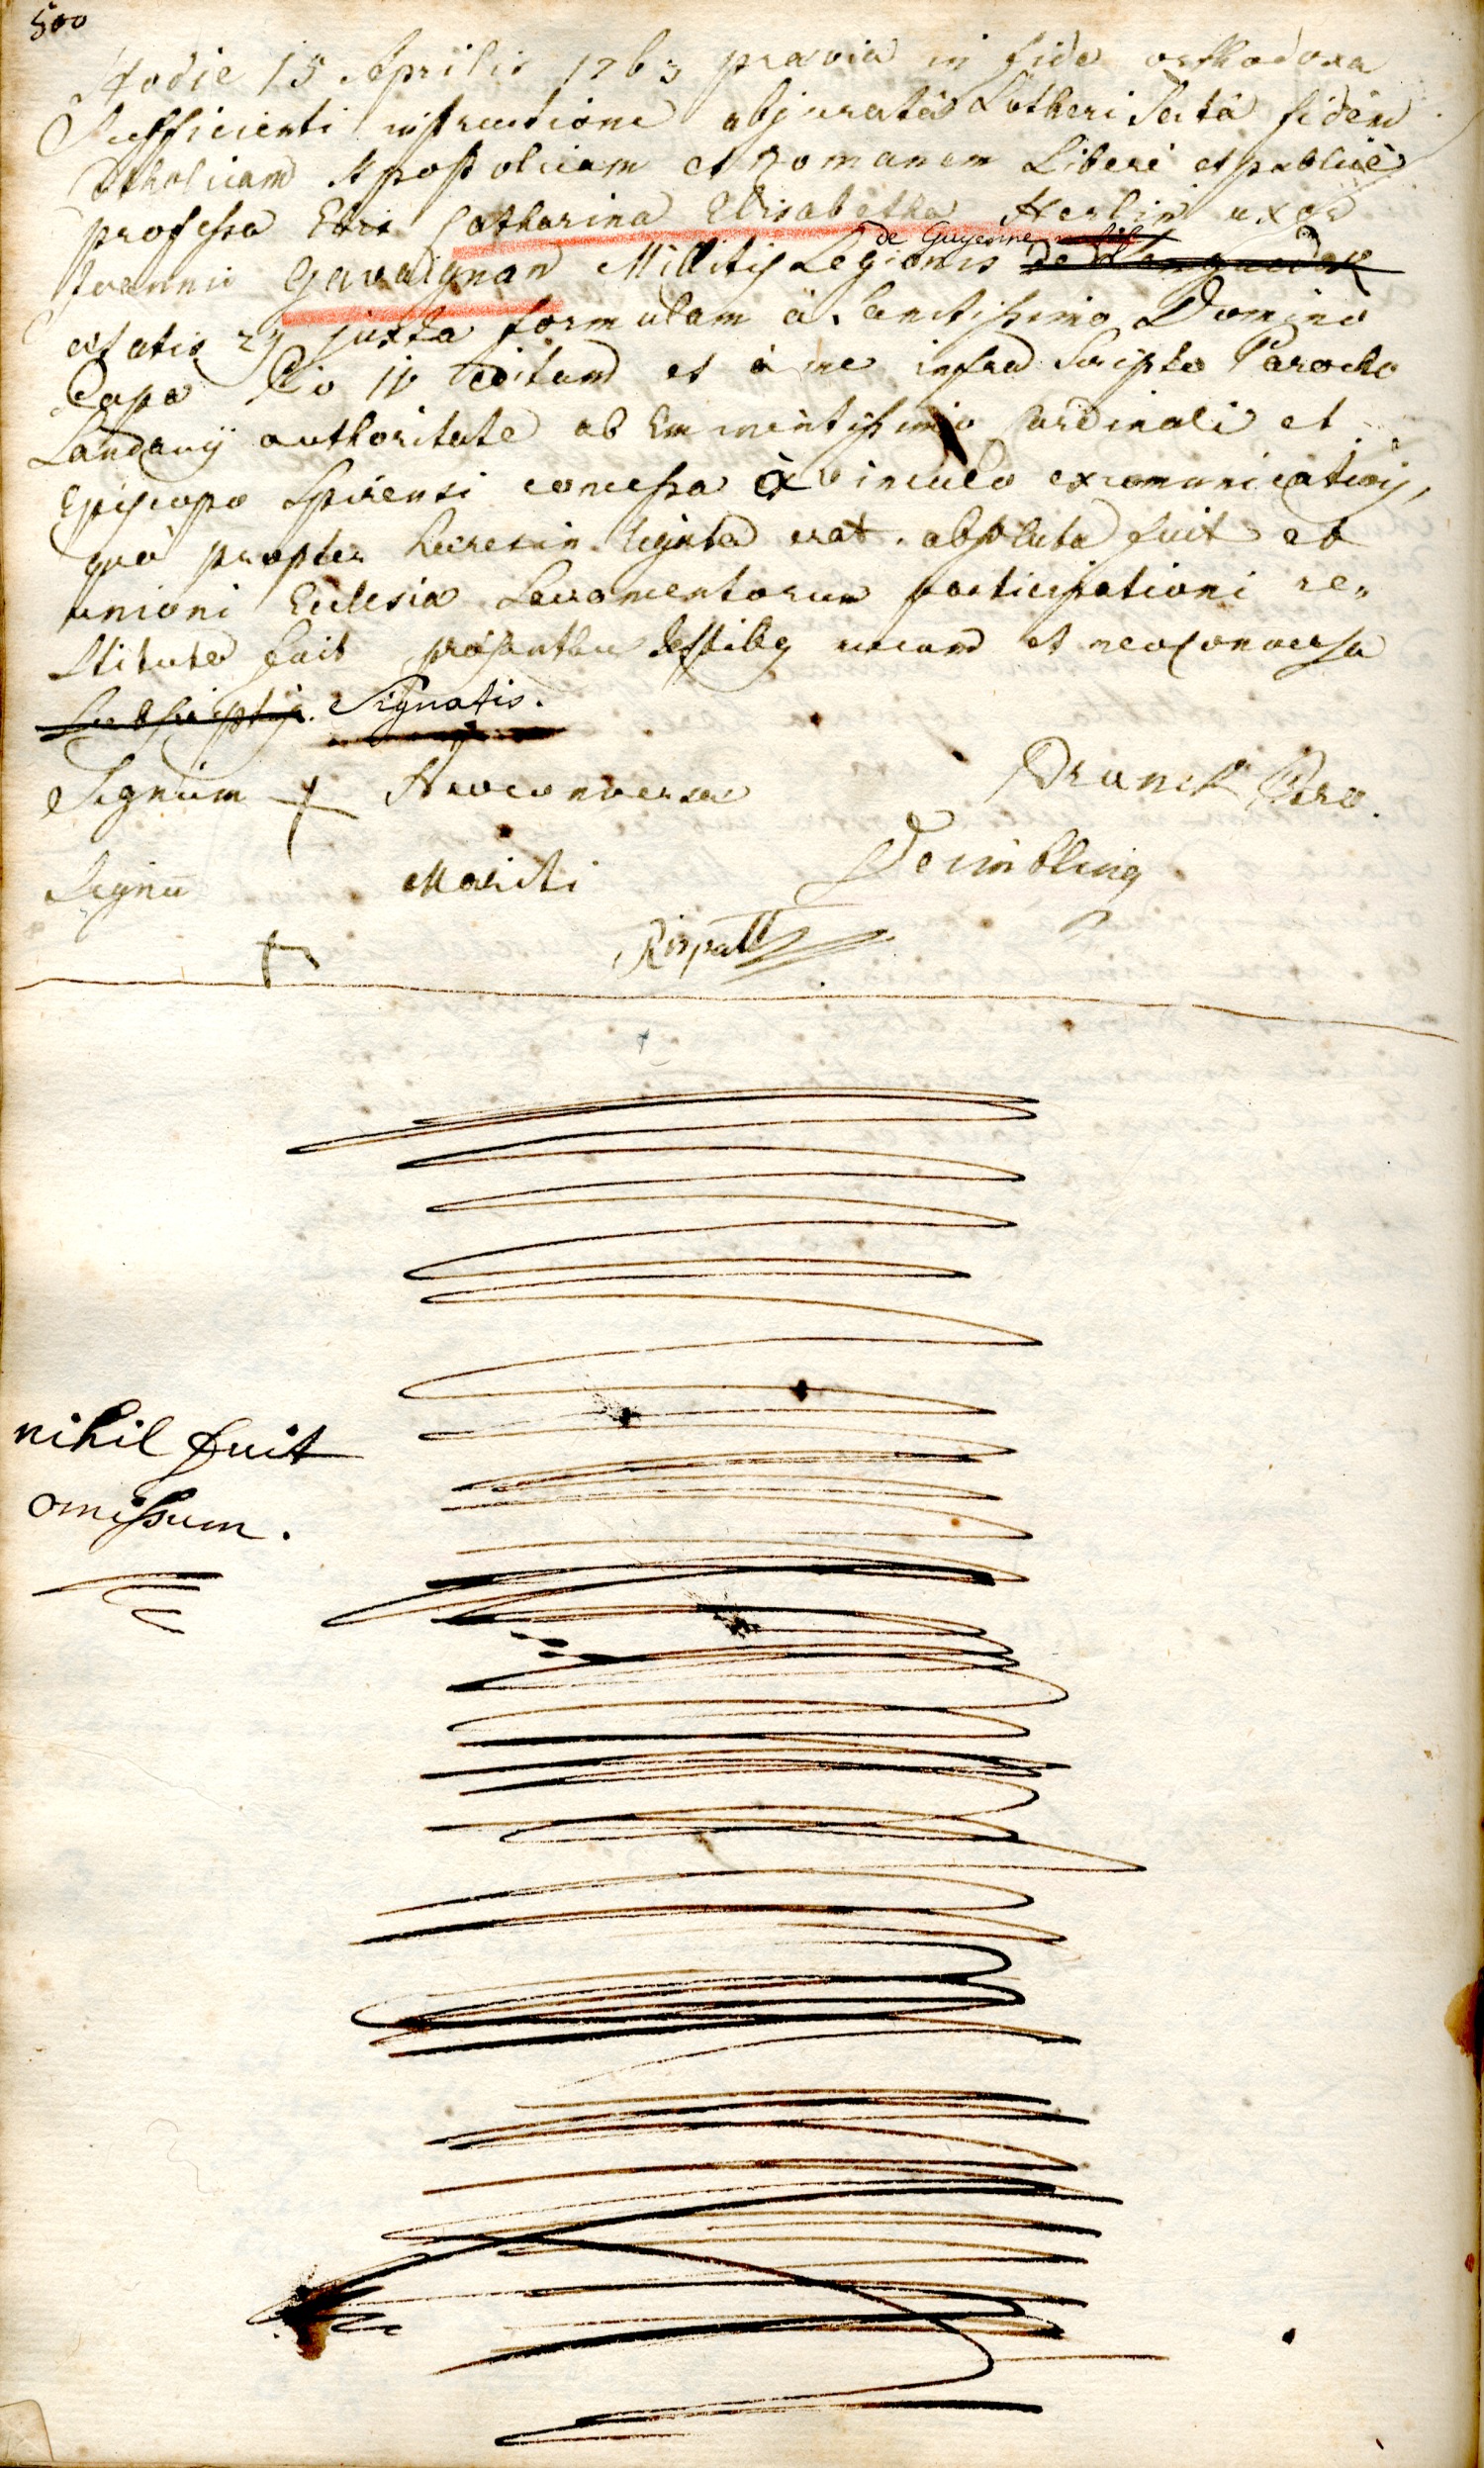 500
Hodie 15 Aprilis 1763 prævia in fide orthodoxa
Sufficienti instructione abjuratâ Lutheri Sectâ fidem
Catholicam Apostolicam et Romanam Liberè et publicè
professa Catharina Elisabetha Herlin uxor
Joannis Gavaignan Militis Legionis de Guyenne
ætatis 27 juxta formulam à Sanctissimo Domino
Papa Pio IV editam et à me infra Scripto Parocho
Landavij authoritate ab Eminentissimo Cardinali et
Episcopo Spirensi concessa à vinculo excomunicationis,
quô propter hæresin ligata erat. absoluta fuit et
unioni Ecclesiæ Sacramentorum participationi re-
stituta fuit præsentibus testibus mecum et neoconversa
Subscriptis. Signatis.
Signum Neoconversæ
Signũ Mariti
nihil fuit
omissum.